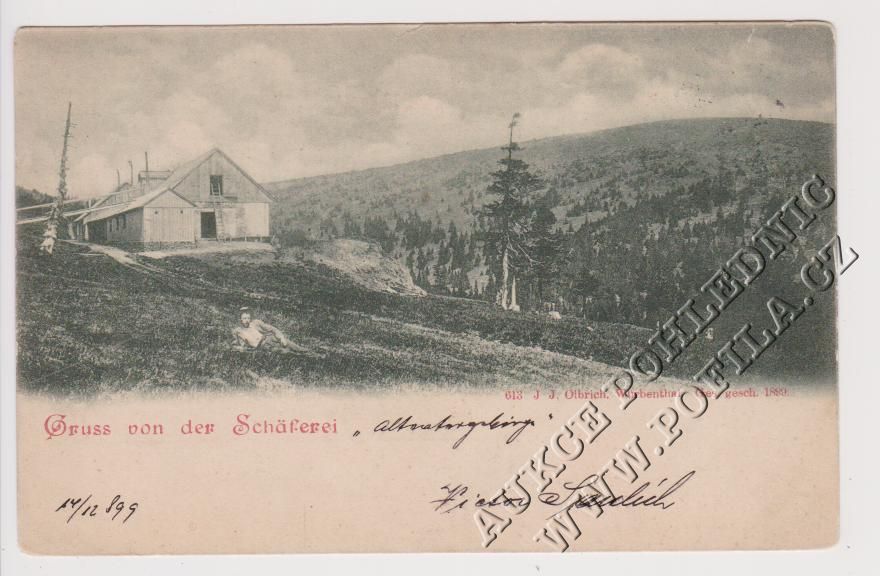 613 J. J. Olbrich, Würbenthal. Ges. gesch. 1899.
Gruss von der Schäferei „Altvatergebirge"
14/12 899
Victor
AUKCE POHLEDNIC
WWW.POFILA.CZ